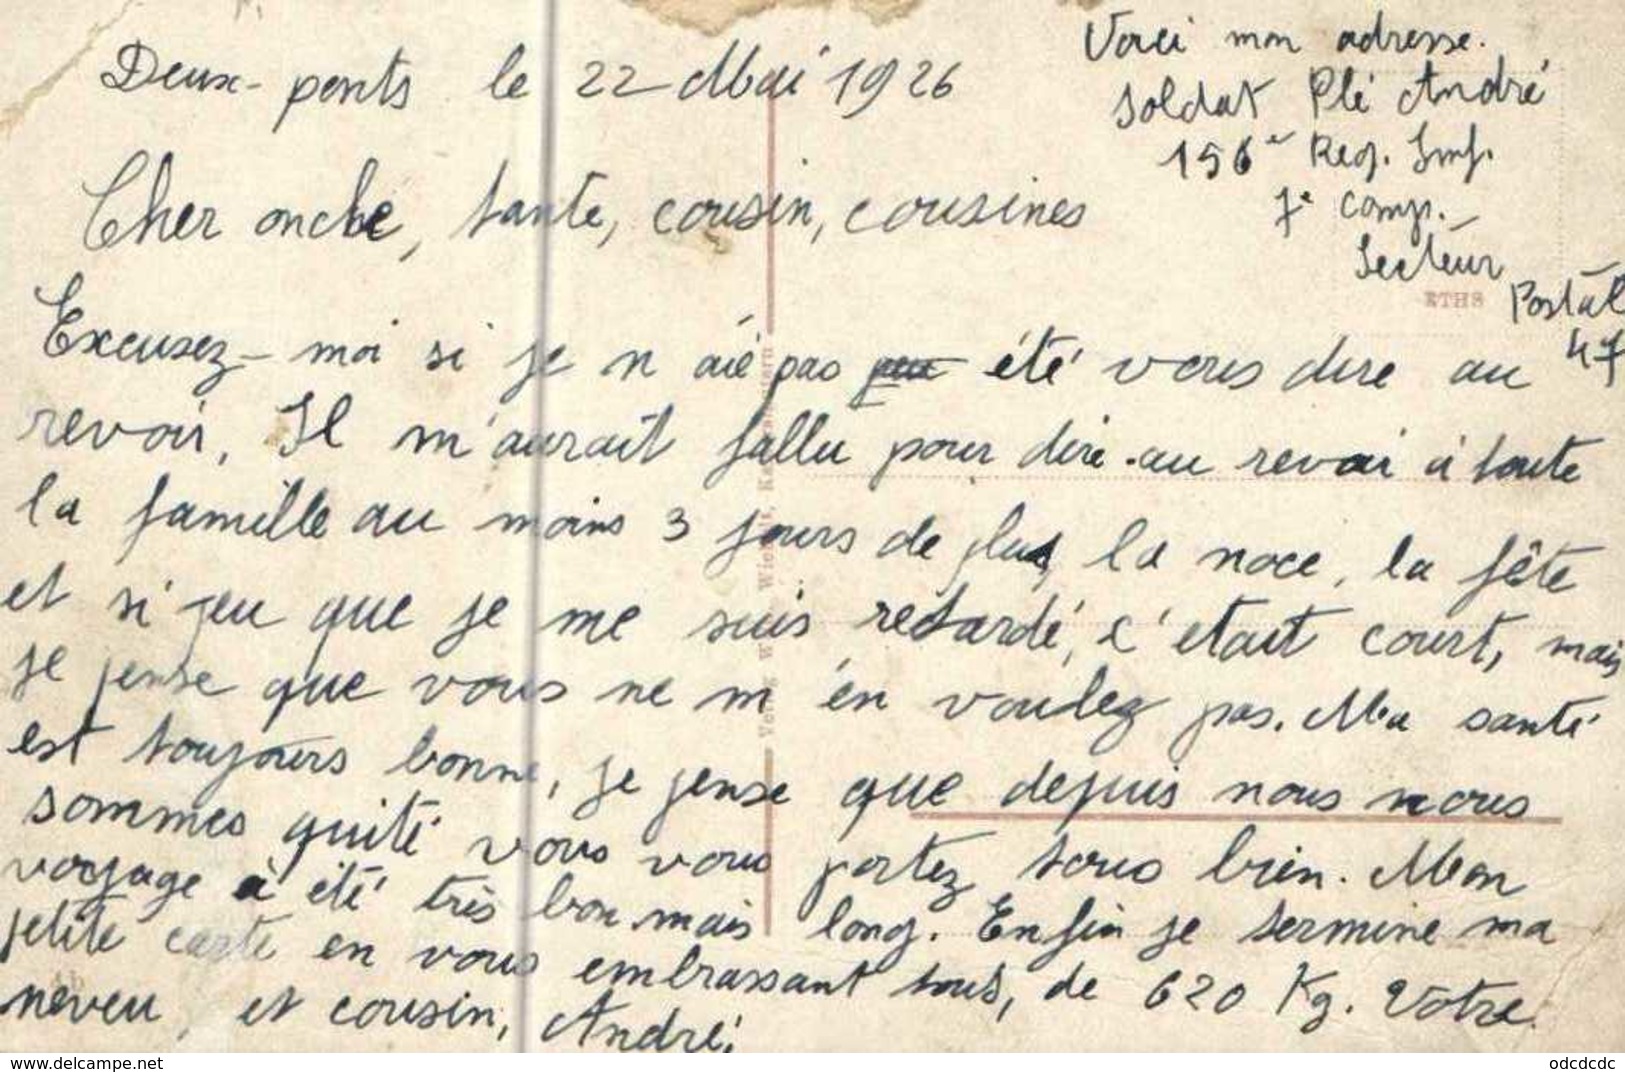 Deux-ponts le 22 Mai 1926
Voici mon adresse.
Soldat Plé André
156e Reg. Inf.
7e Comp.
Secteur
Postal
47
ETHS
Cher oncle, tante, cousin, cousines
Excusez-moi si je n aié pas été vous dire au
revoir. Il m'aurait fallu pour dire au revoir à toute
la famille au moins 3 jours de plus, la noce, la fête
et si peu que je me suis retardé, c'etait court, mais
je pense que vous ne m'en voulez pas. Ma santé
est toujours bonne, je pense que depuis nous nous
sommes quité vous vous portez tous bien. Mon
voyage à été très bon mais long. Enfin je termine ma
petite carte en vous embrassant tous, de 620 Kg. Votre
neveu, et cousin, André
delcampe.net
odcdcdc